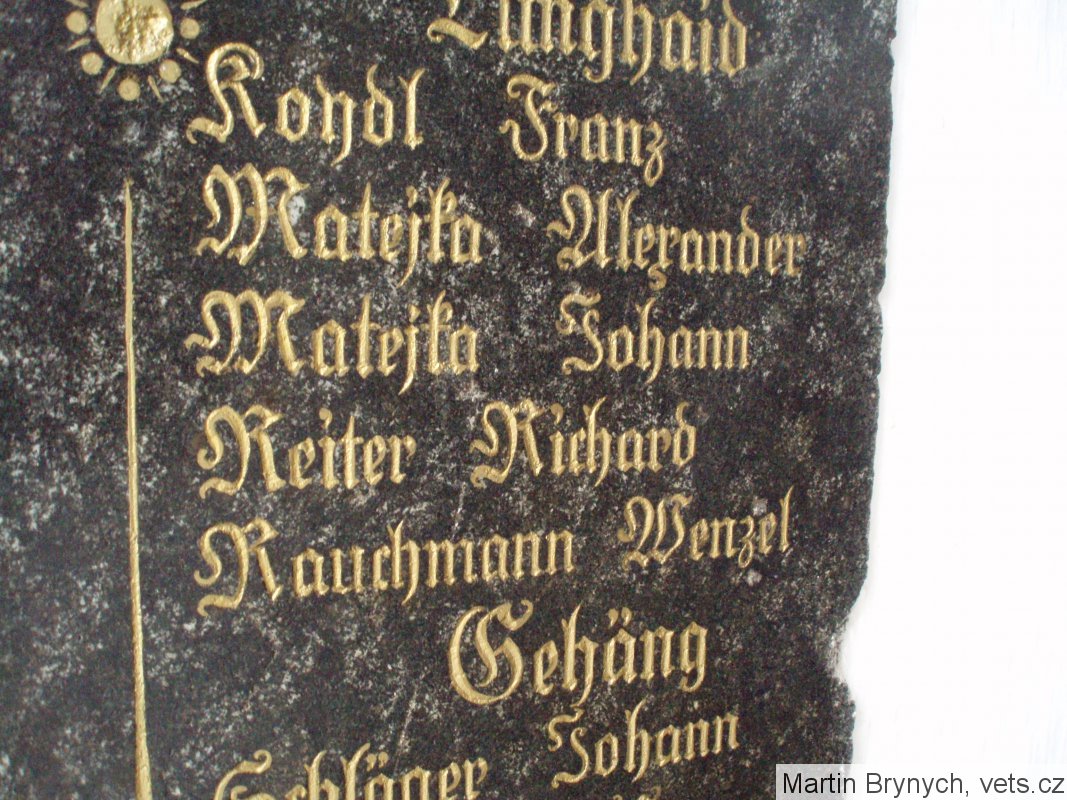 Langhaid
Koydl Franz
Matejka Alexander
Matejka Johann
Reiter Richard
Rauchmann Wenzel
Gehäng
Schläger Johann
Martin Brynych, vets.cz